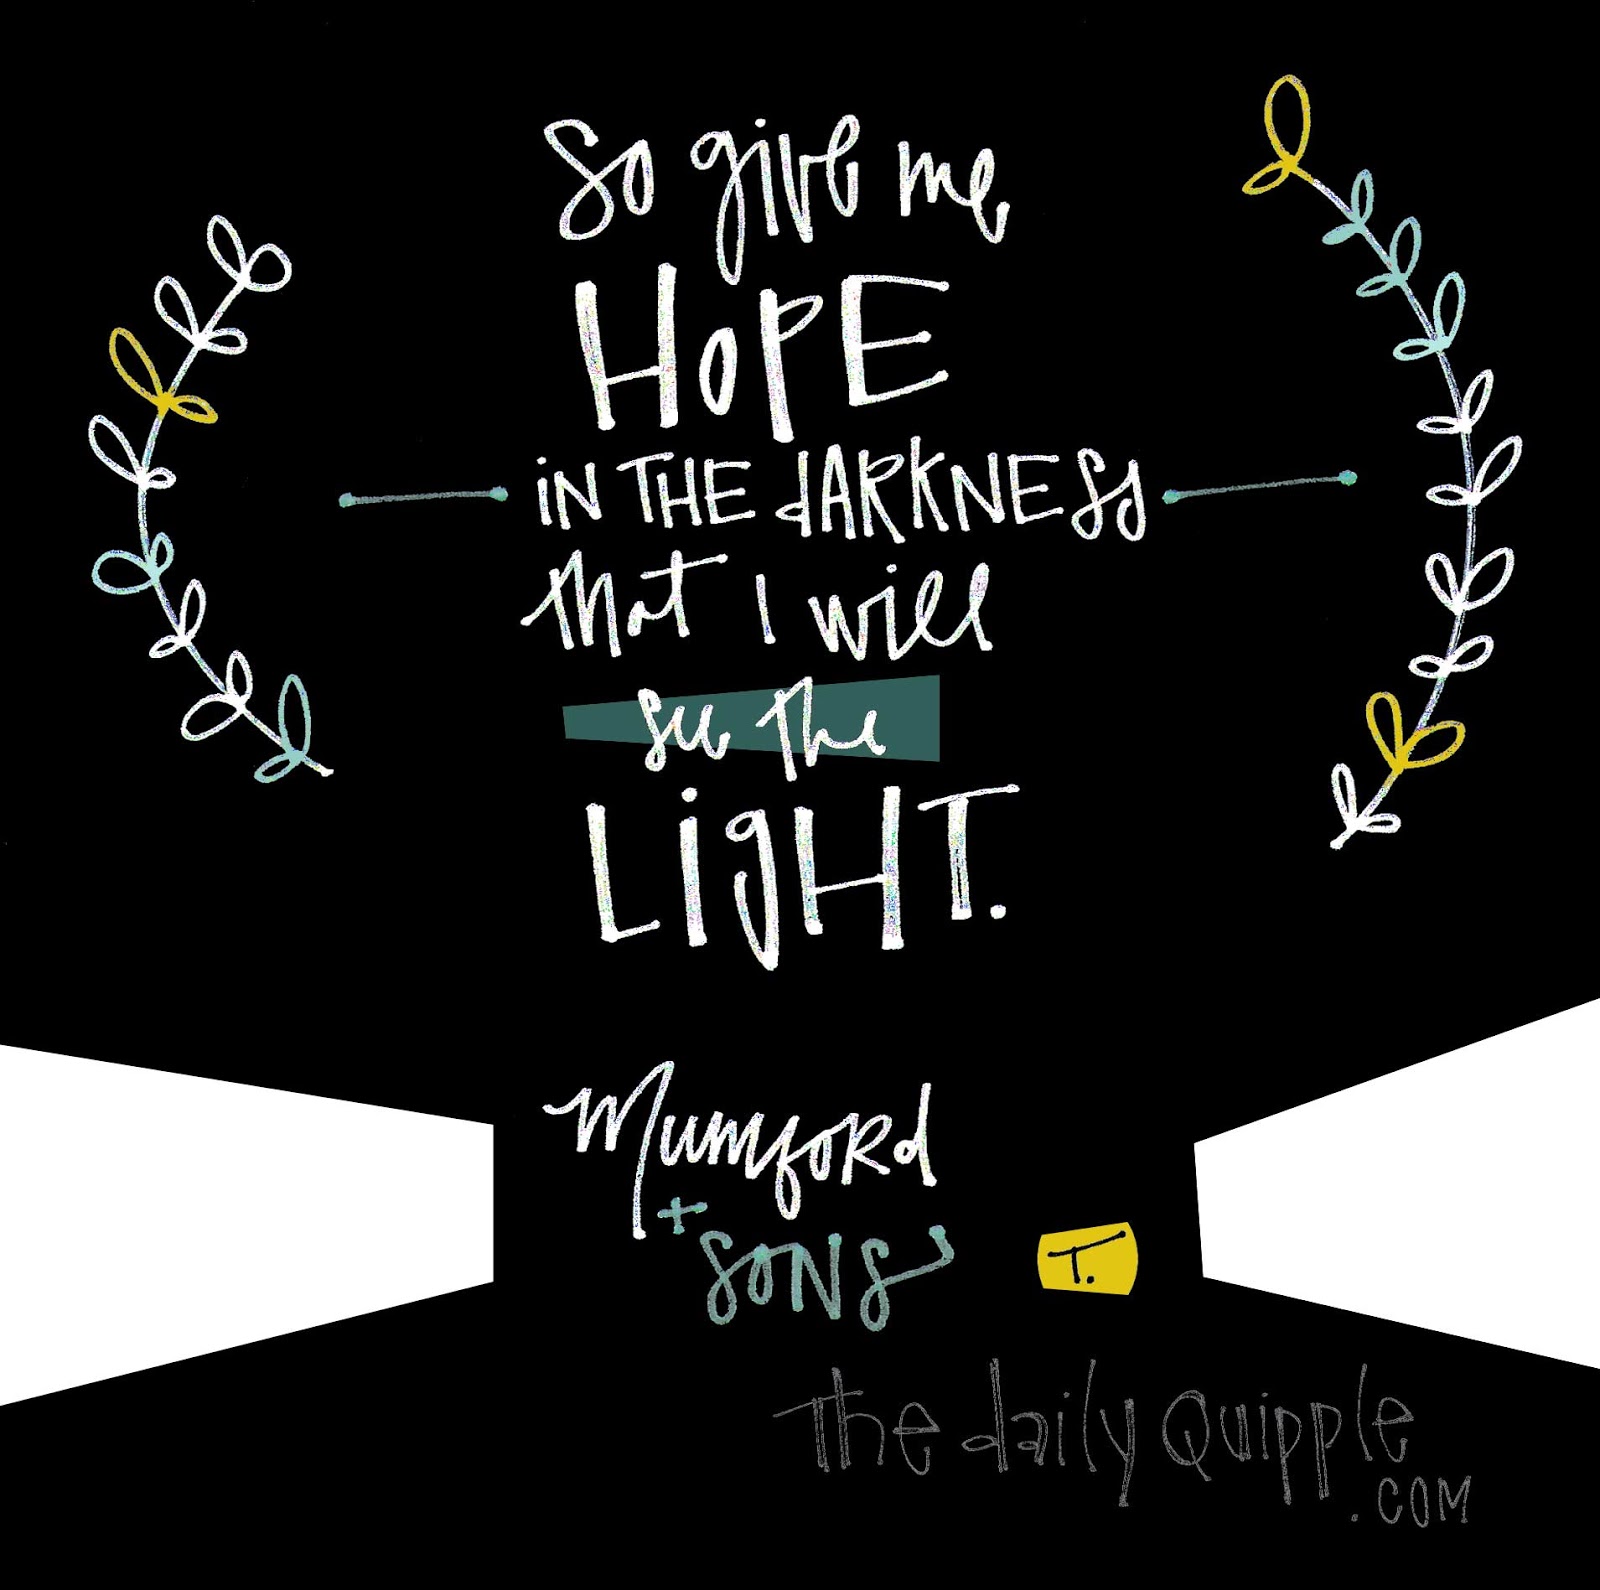 So give me
HOPE
iN THE dARKNESS
that I will
see the
LigHT.
Mumford
+
SONS
T.
The daily Quipple
.COM